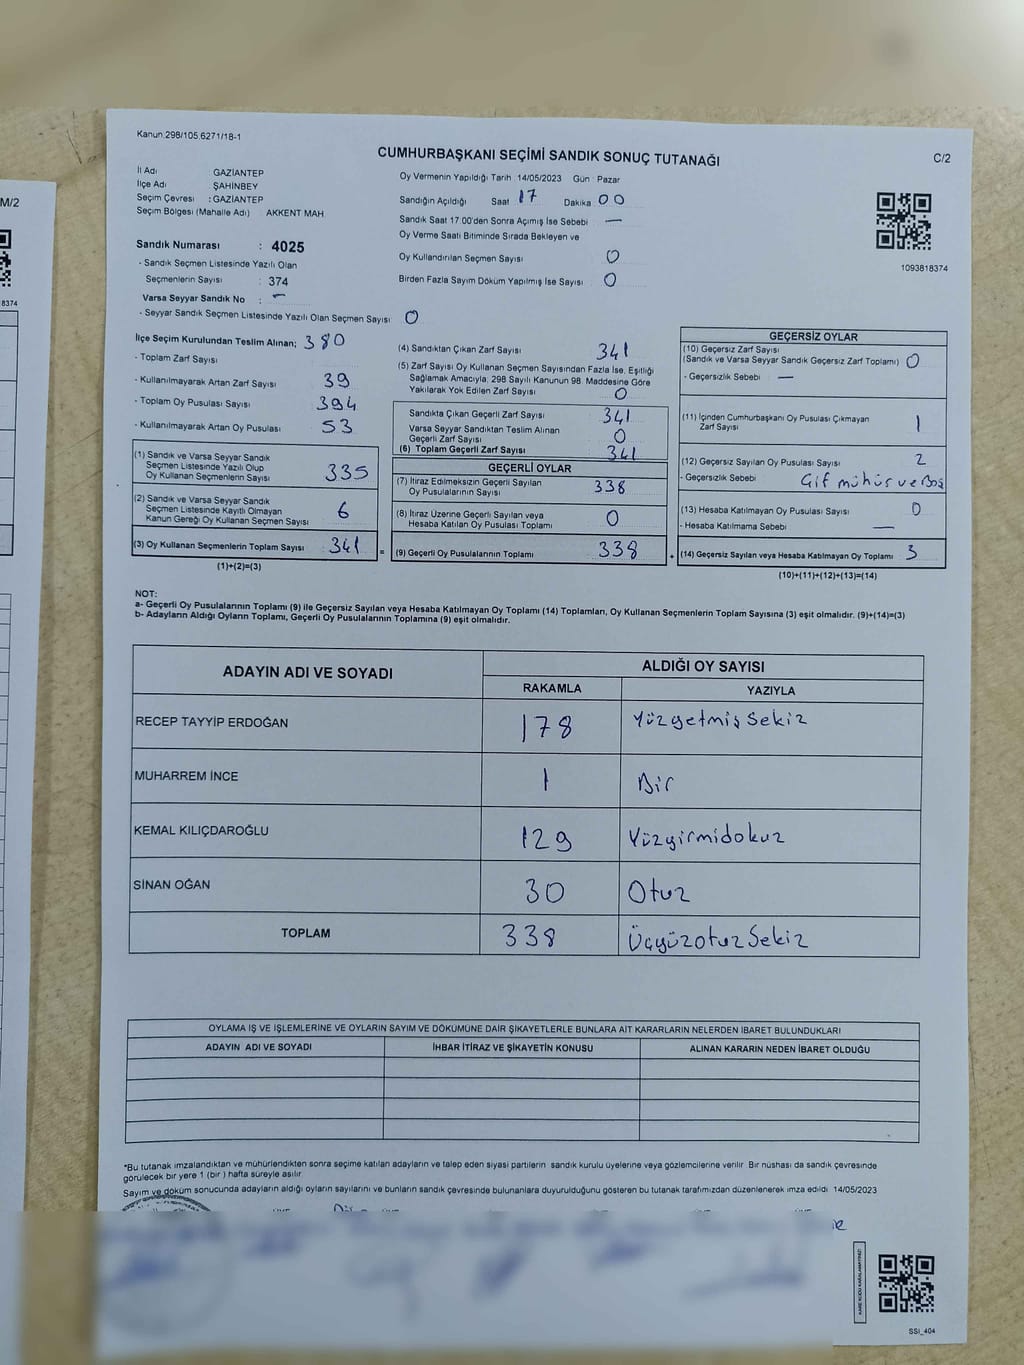 Kanun 298/105,6271/18-1
CUMHURBAŞKANI SEÇİMİ SANDIK SONUÇ TUTANAĞI
C/2
M/2
8374
İl Adı GAZİANTEP
İlçe Adı ŞAHİNBEY
Seçim Çevresi : GAZİANTEP
Seçim Bölgesi (Mahalle Adı) AKKENT MAH
Sandık Numarası : 4025
- Sandık Seçmen Listesinde Yazılı Olan
Seçmenlerin Sayısı : 374
Varsa Seyyar Sandık No : -
- Seyyar Sandık Seçmen Listesinde Yazılı Olan Seçmen Sayısı 0
Oy Vermenin Yapıldığı Tarih : 14/05/2023 Gün : Pazar
Sandığın Açıldığı Saat 17 Dakika 00
Sandık Saat 17 00'den Sonra Açımış İse Sebebi —
Oy Verme Saati Bitiminde Sırada Bekleyen ve
Oy Kullandırılan Seçmen Sayısı 0
Birden Fazla Sayım Döküm Yapılmış İse Sayısı 0
1093818374
İlçe Seçim Kurulundan Teslim Alınan; 380
- Toplam Zarf Sayısı
- Kullanılmayarak Artan Zarf Sayısı 39
- Toplam Oy Pusulası Sayısı 394
- Kullanılmayarak Artan Oy Pusulası 53
(1) Sandık ve Varsa Seyyar Sandık
Seçmen Listesinde Yazılı Olup
Oy Kullanan Seçmenlerin Sayısı 335
(2) Sandık ve Varsa Seyyar Sandık
Seçmen Listesinde Kayıtlı Olmayan
Kanun Gereği Oy Kullanan Seçmen Sayısı 6
(3) Oy Kullanan Seçmenlerin Toplam Sayısı 341 =
(1)+(2)=(3)
(4) Sandıktan Çıkan Zarf Sayısı 341
(5) Zarf Sayısı Oy Kullanan Seçmen Sayısından Fazla İse, Eşitliği
Sağlamak Amacıyla, 298 Sayılı Kanunun 98. Maddesine Göre
Yakılarak Yok Edilen Zarf Sayısı 0
Sandıkta Çıkan Geçerli Zarf Sayısı 341
Varsa Seyyar Sandıktan Teslim Alınan
Geçerli Zarf Sayısı 0
(6) Toplam Geçerli Zarf Sayısı 341
GEÇERLİ OYLAR
(7) İtiraz Edilmeksizin Geçerli Sayılan
Oy Pusulalarının Sayısı 338
(8) İtiraz Üzerine Geçerli Sayılan veya
Hesaba Katılan Oy Pusulası Toplamı 0
(9) Geçerli Oy Pusulalarının Toplamı 338 +
GEÇERSİZ OYLAR
(10) Geçersiz Zarf Sayısı
(Sandık ve Varsa Seyyar Sandık Geçersiz Zarf Toplamı) 0
- Geçersizlik Sebebi —
(11) İçinden Cumhurbaşkanı Oy Pusulası Çıkmayan
Zarf Sayısı 1
(12) Geçersiz Sayılan Oy Pusulası Sayısı 2
- Geçersizlik Sebebi Çif mühür ve Boş
(13) Hesaba Katılmayan Oy Pusulası Sayısı 0
- Hesaba Katılmama Sebebi —
(14) Geçersiz Sayılan veya Hesaba Katılmayan Oy Toplamı 3
(10)+(11)+(12)+(13)=(14)
NOT:
a- Geçerli Oy Pusulalarının Toplamı (9) ile Geçersiz Sayılan veya Hesaba Katılmayan Oy Toplamı (14) Toplamları, Oy Kullanan Seçmenlerin Toplam Sayısına (3) eşit olmalıdır. (9)+(14)=(3)
b- Adayların Aldığı Oyların Toplamı, Geçerli Oy Pusulalarının Toplamına (9) eşit olmalıdır.
ADAYIN ADI VE SOYADI ALDIĞI OY SAYISI
RAKAMLA YAZIYLA
RECEP TAYYİP ERDOĞAN 178 Yüzyetmişsekiz
MUHARREM İNCE 1 Bir
KEMAL KILIÇDAROĞLU 129 Yüzyirmidokuz
SİNAN OĞAN 30 Otuz
TOPLAM 338 Üçyüzotuzsekiz
OYLAMA İŞ VE İŞLEMLERİNE VE OYLARIN SAYIM VE DÖKÜMÜNE DAİR ŞİKAYETLERLE BUNLARA AİT KARARLARIN NELERDEN İBARET BULUNDUKLARI
ADAYIN ADI VE SOYADI İHBAR İTİRAZ VE ŞİKAYETİN KONUSU ALINAN KARARIN NEDEN İBARET OLDUĞU
*Bu tutanak imzalandıktan ve mühürlendikten sonra seçime katılan adayların ve talep eden siyasi partilerin sandık kurulu üyelerine veya gözlemcilerine verilir Bir nüshası da sandık çevresinde
görülecek bir yere 1 (bir ) hafta süreyle asılır.
Sayım ve döküm sonucunda adayların aldığı oyların sayılarını ve bunların sandık çevresinde bulunanlara duyurulduğunu gösteren bu tutanak tarafımızdan düzenlenerek imza edildi 14/05/2023
SSI_404